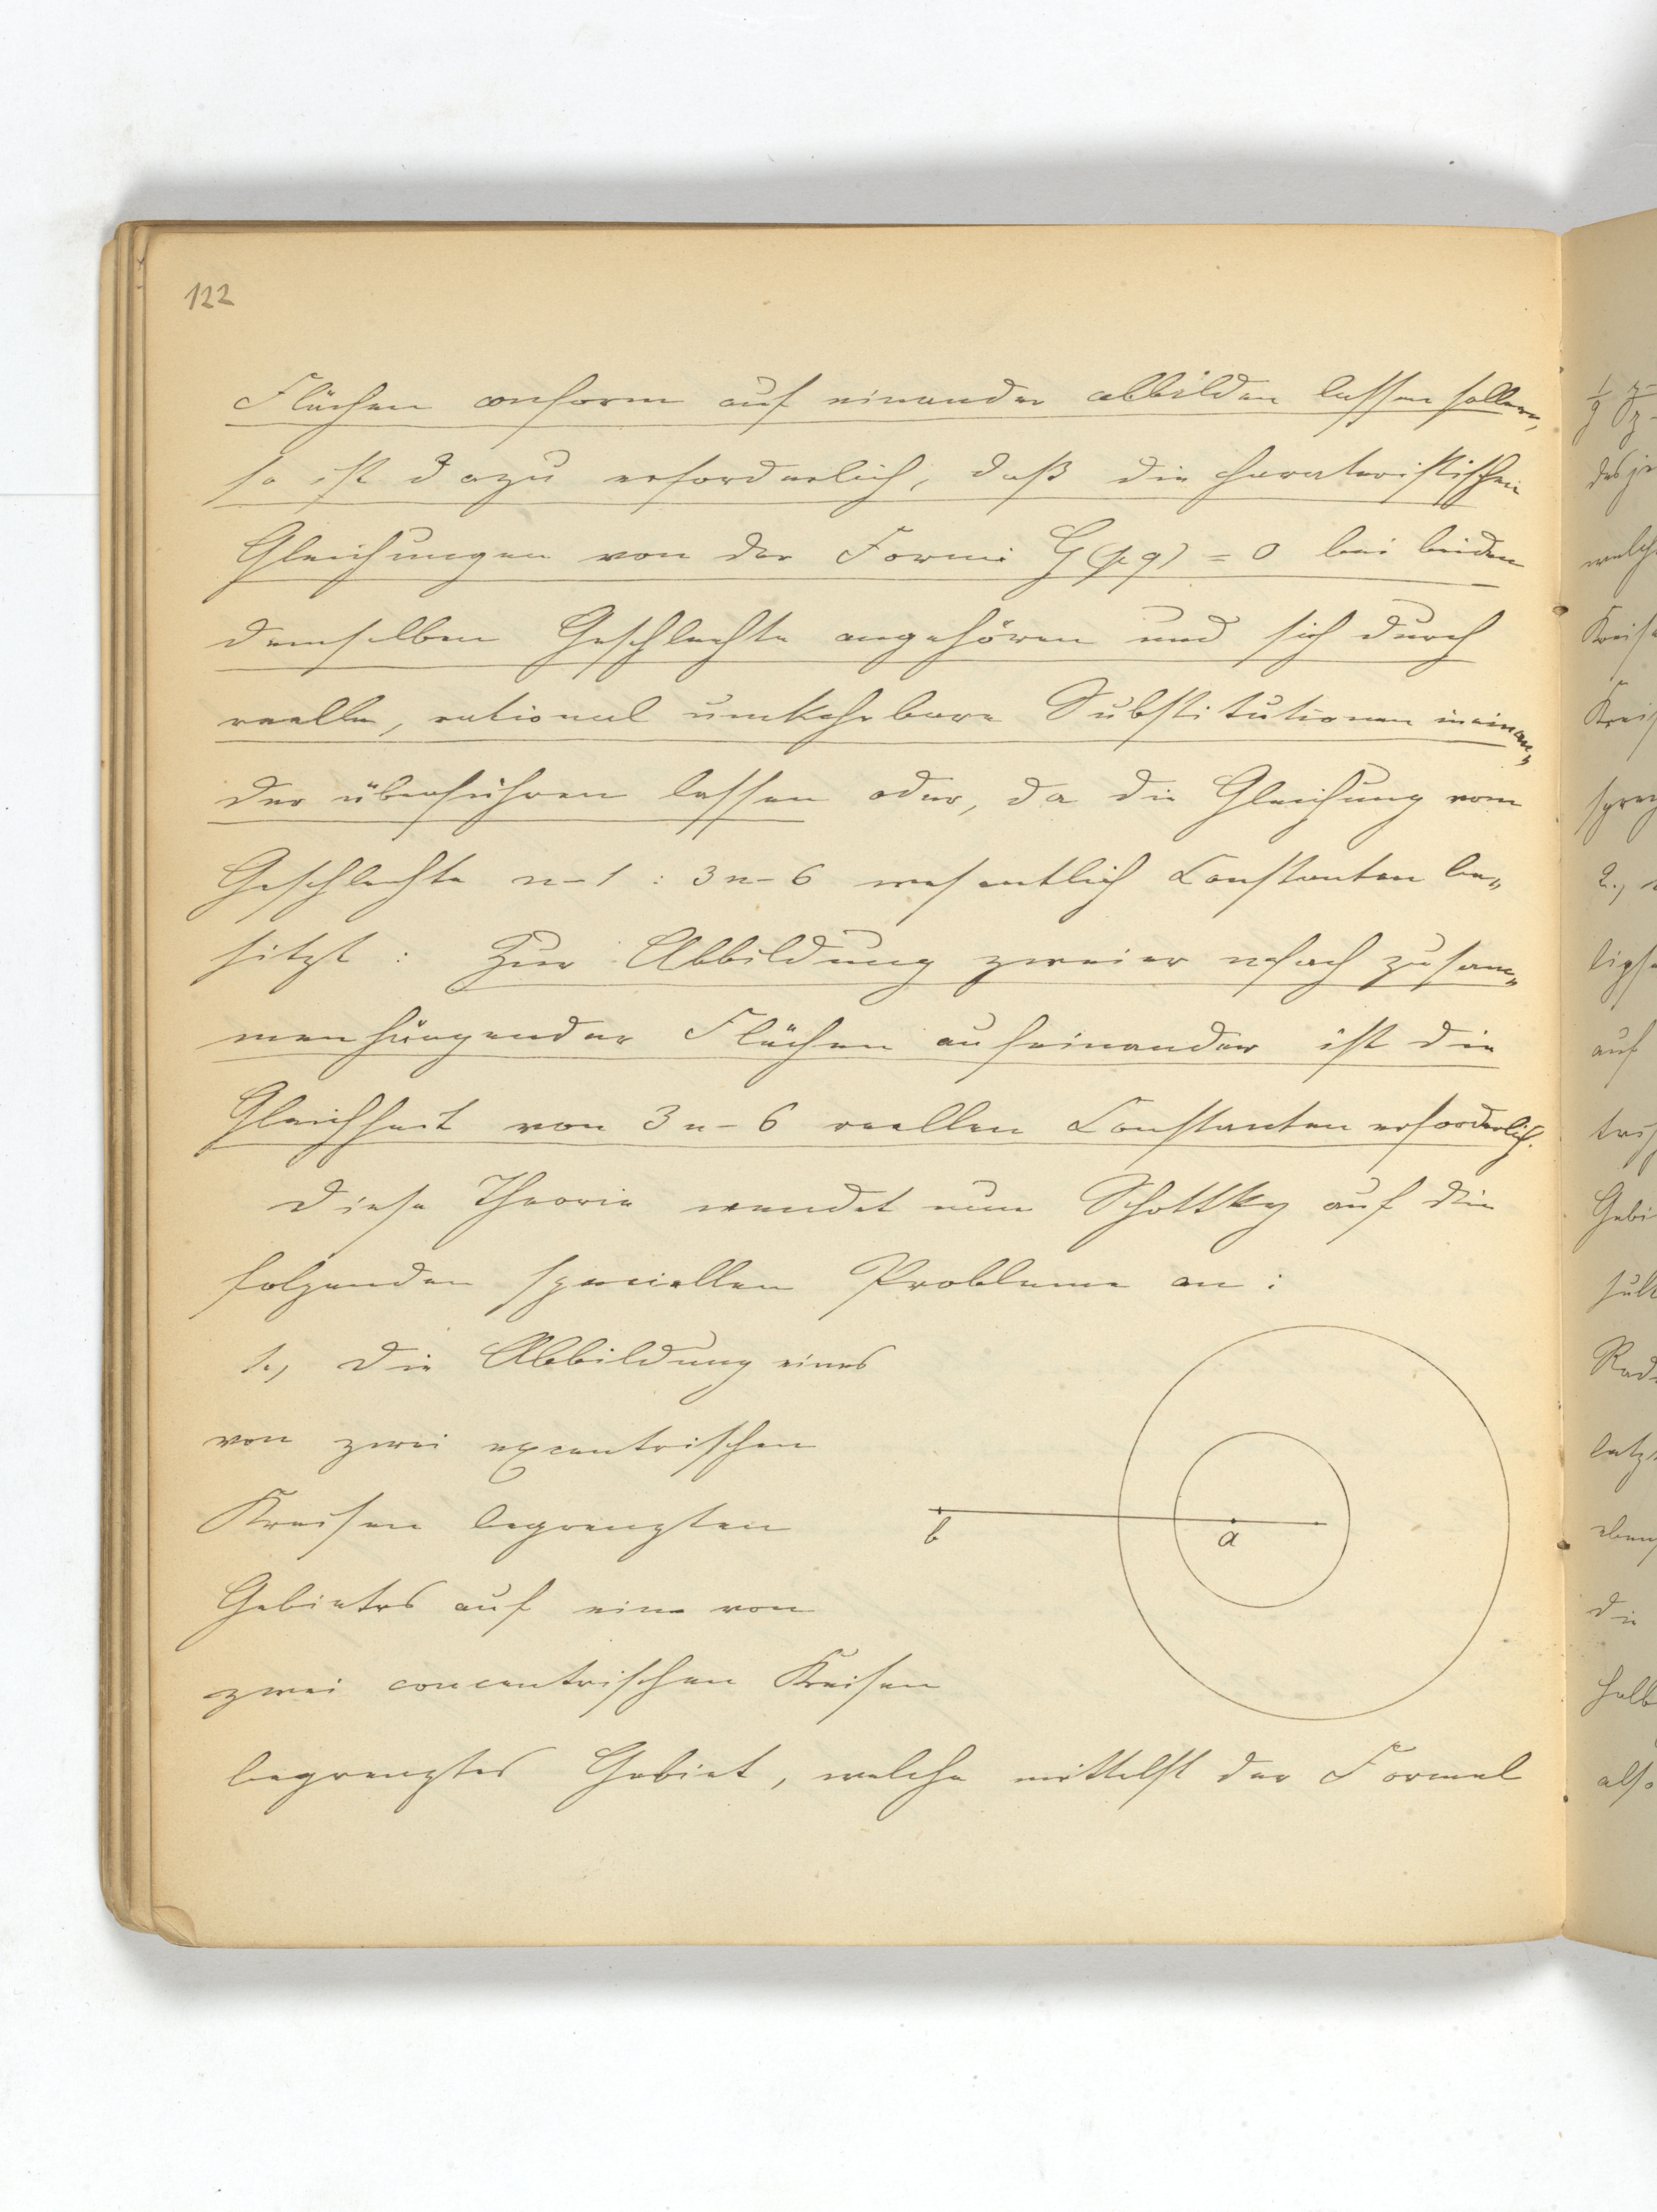 122
Flächen conform auf einander abbilden lassen sollen,
so ist dazu erforderlich, daß die charateristischen
Gleichungen von der Form: G(p q) = 0 bei beiden
demselben Geschlechte angehören und sich durch
reelle, rational umkehrbare Substitutionen ineinan„
der überführen lassen oder, da die Gleichung vom
Geschlechte n-1 : 3n-6 wesentlich Constanten be„
sitzt : Zur Abbildung zweier nfach zusam„
menhängender Flächen aufeinander ist die
Gleichheit von 3n-6 reellen Constanten erforderlich.
Diese Theorie wendet nun Schottky auf die
folgenden speciellen Probleme an :
1., Die Abbildung eines
von zwei excentrischen
Kreisen begrenzten
Gebietes auf ein von
zwei concentrischen Kreisen
begrenztes Gebiet, welche mittelst der Formel
b
a
auf
die
also